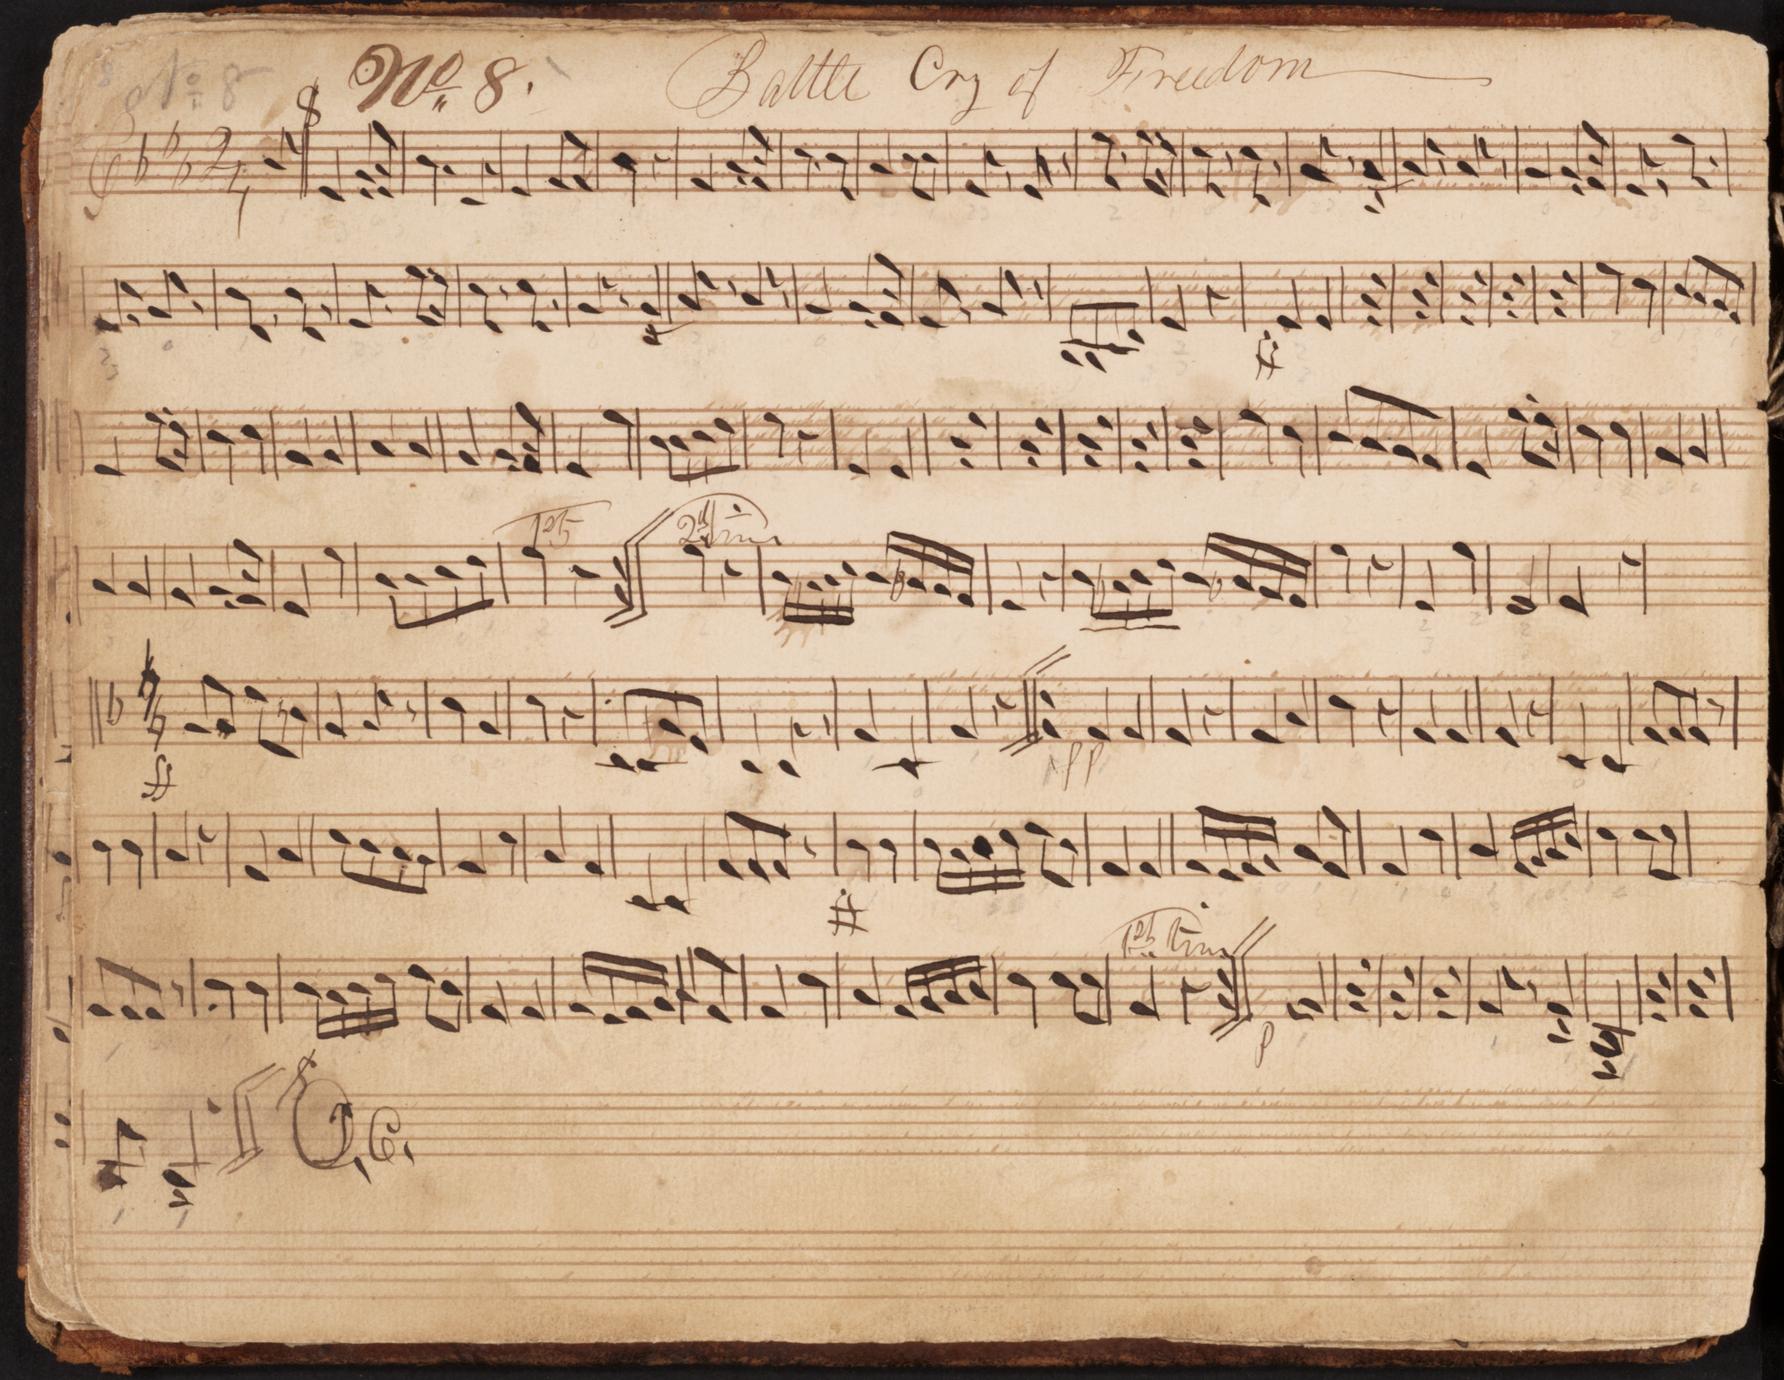 No. 8. Battle Cry of Freedom
No 8
2/4
1st 2d time
ff
pp
ff
1st time
p
D.C.